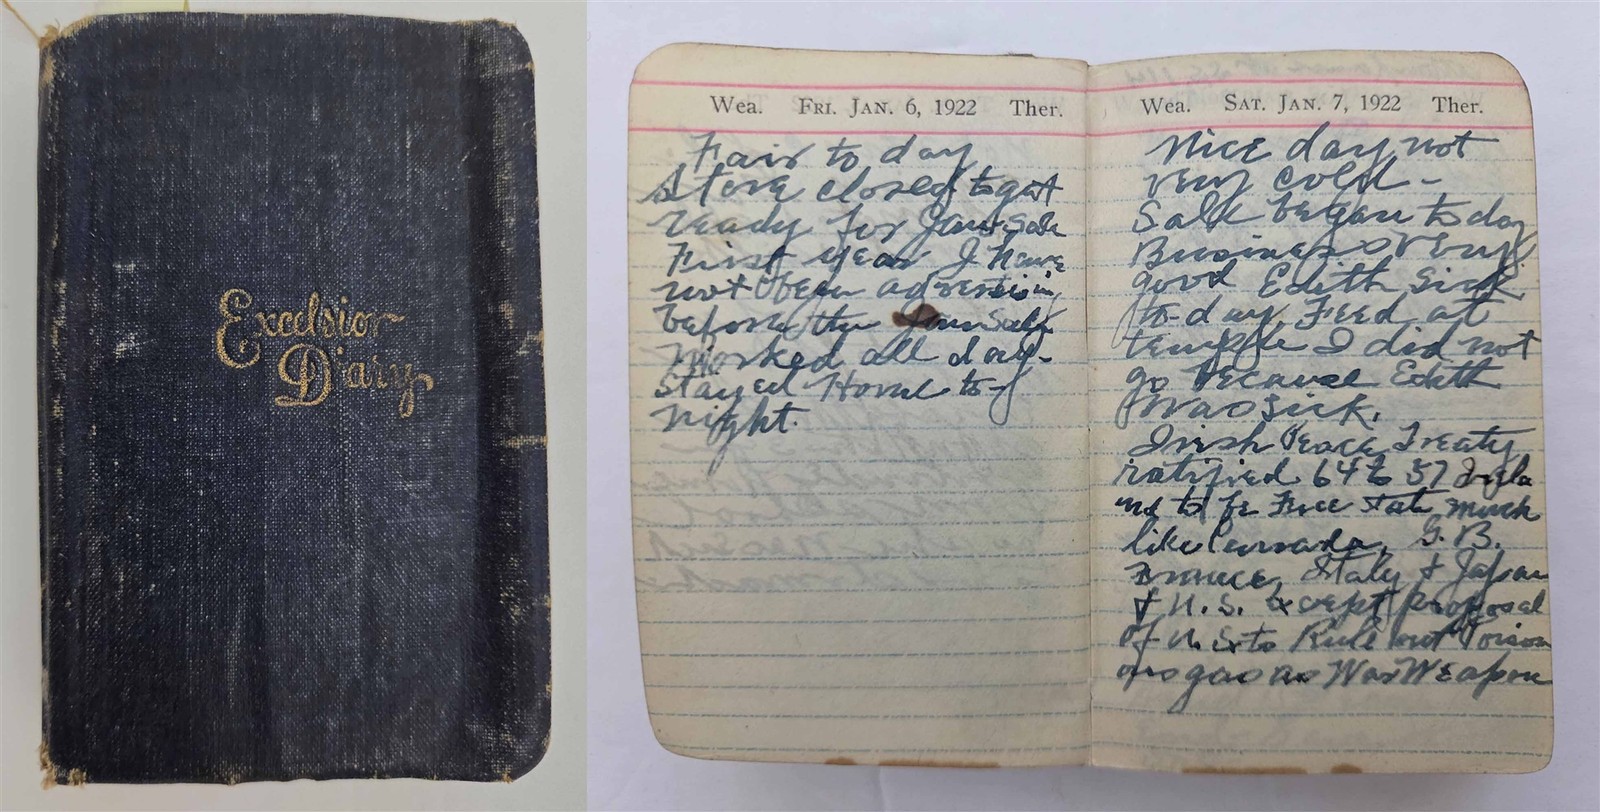 Excelsior
Diary
Wea. FRI. JAN. 6, 1922 Ther.
Fair to day
Store closed to get
ready for Jan Sale
First year I have
not been advertising
before the Jan Sale
Worked all day-
Stayed Home to-
night.
Wea. SAT. JAN. 7, 1922 Ther.
Nice day not
very cold -
Sale began to day
Business very
good Edith Sick
to-day Feed at
temple I did not
go because Edith
was sick.
Irish Peace Treaty
ratified 64 to 57
to be Free State much
like Canada. G. B.
France, Italy & Japan
& U. S. except proposal
of U S to Rule out Poison
gas as War Weapon